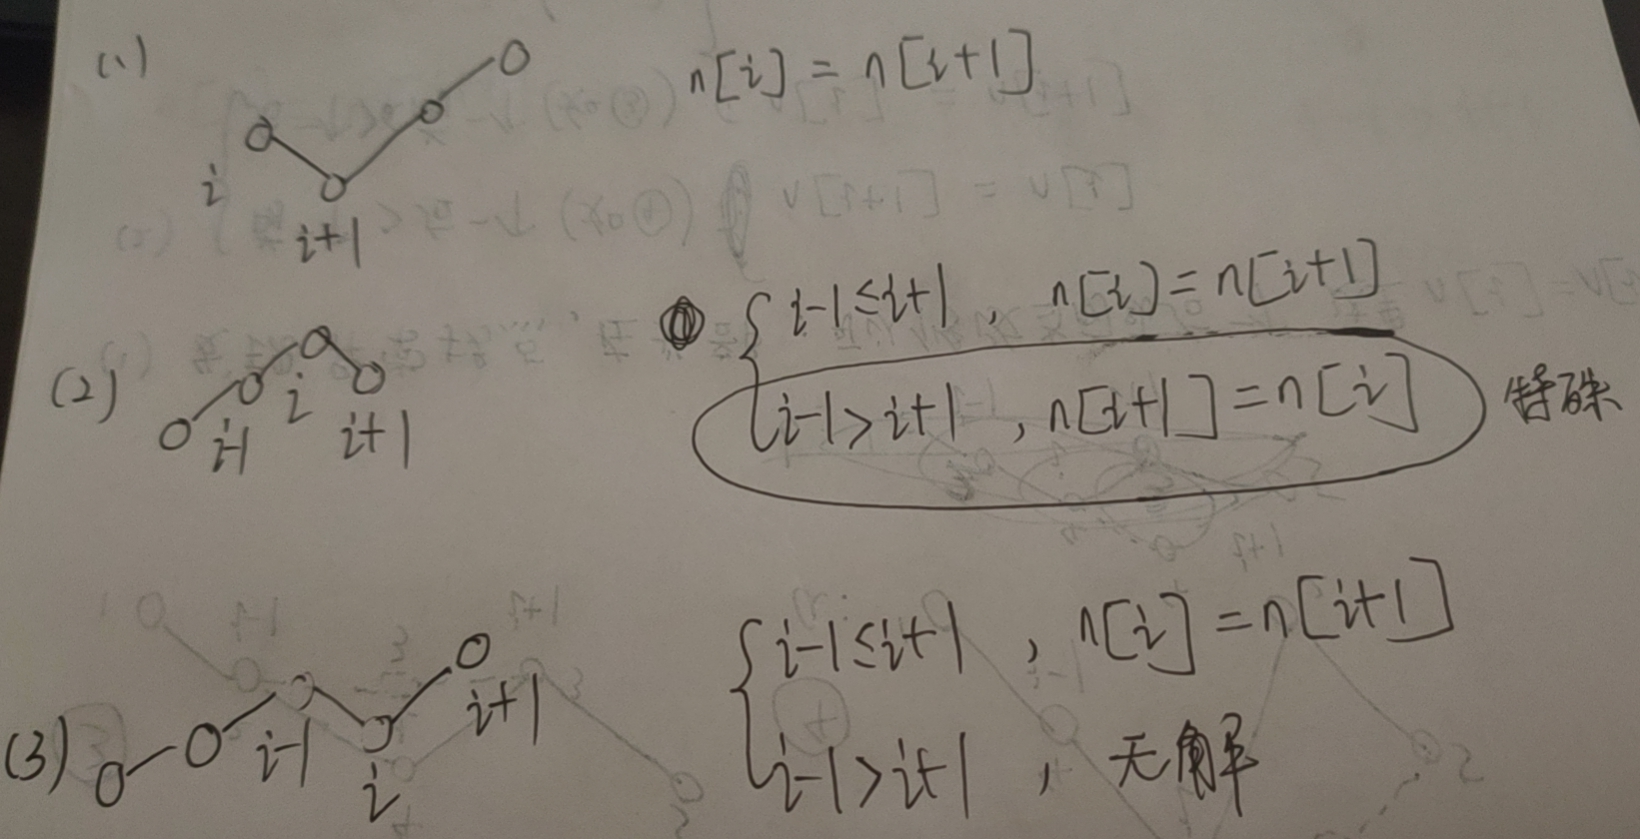 (1)
n[i] = n[i+1]
i
i+1
(2)
i-1
i
i+1
i-1≤i+1 , n[i]=n[i+1]
i-1>i+1 , n[i+1]=n[i]
特殊
(3)
i-1
i
i+1
i-1≤i+1 , n[i]=n[i+1]
i-1>i+1 , 无解